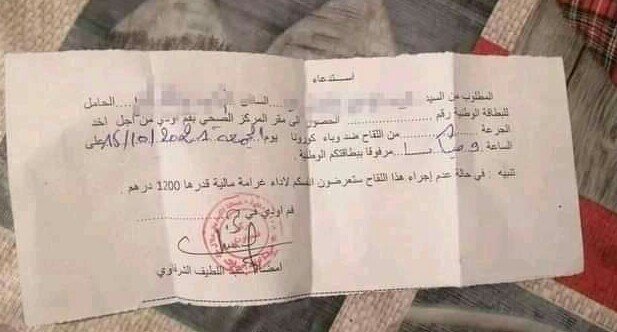 استدعاء
المطلوب من السيد الساكن الحامل
للبطاقة الوطنية رقم .................. الحضور الى مقر المركز الصحي بفم اودي من أجل اخد
الجرعة من اللقاح ضد وباء كورونا يوم الجمعة 15/10/2021 على
الساعة 9 صباحا مرفوقا ببطاقتكم الوطنية .
تنبيه : في حالة عدم إجراء هذا اللقاح ستعرضون انفسكم لاداء غرامة مالية قدرها 1200 درهم .
فم اودي في
امضاء عبد اللطيف الشرقاوي